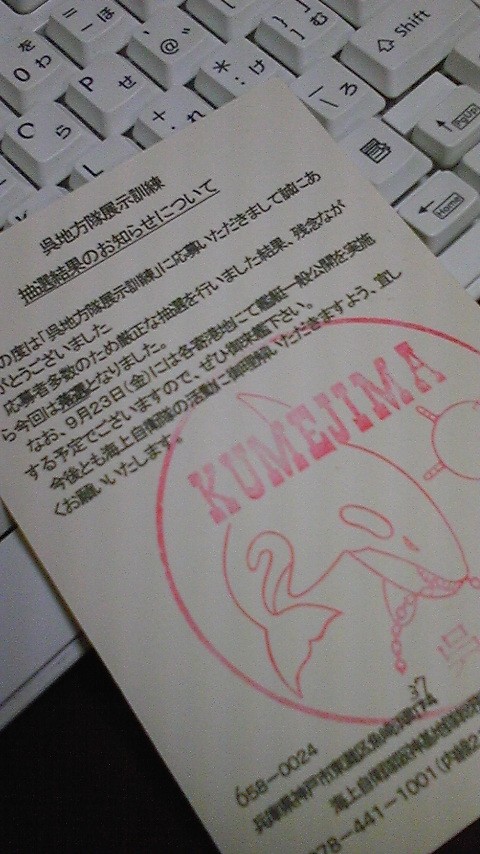 呉地方隊展示訓練
抽選結果のお知らせについて
の度は「呉地方隊展示訓練」に応募いただきまして誠にあ
がとうございました
応募者多数のため厳正な抽選を行いました結果、残念なが
ら今回は落選となりました。
なお、9月23日(金)には各寄港地にて艦艇一般公開を実施
する予定でございますので、ぜひ御来艦下さい。
今後とも海上自衛隊の活動に御理解いただきますよう、宜し
くお願いいたします。
KUMEJIMA
呉
37
658-0024
兵庫県神戸市東灘区魚崎浜町
海上自衛隊阪神基地隊
078-441-1001(内線2
Shift
PgUp
Home
P
せ
O
ら
L
れ
け
む
ろ
を
わ
ほ
@